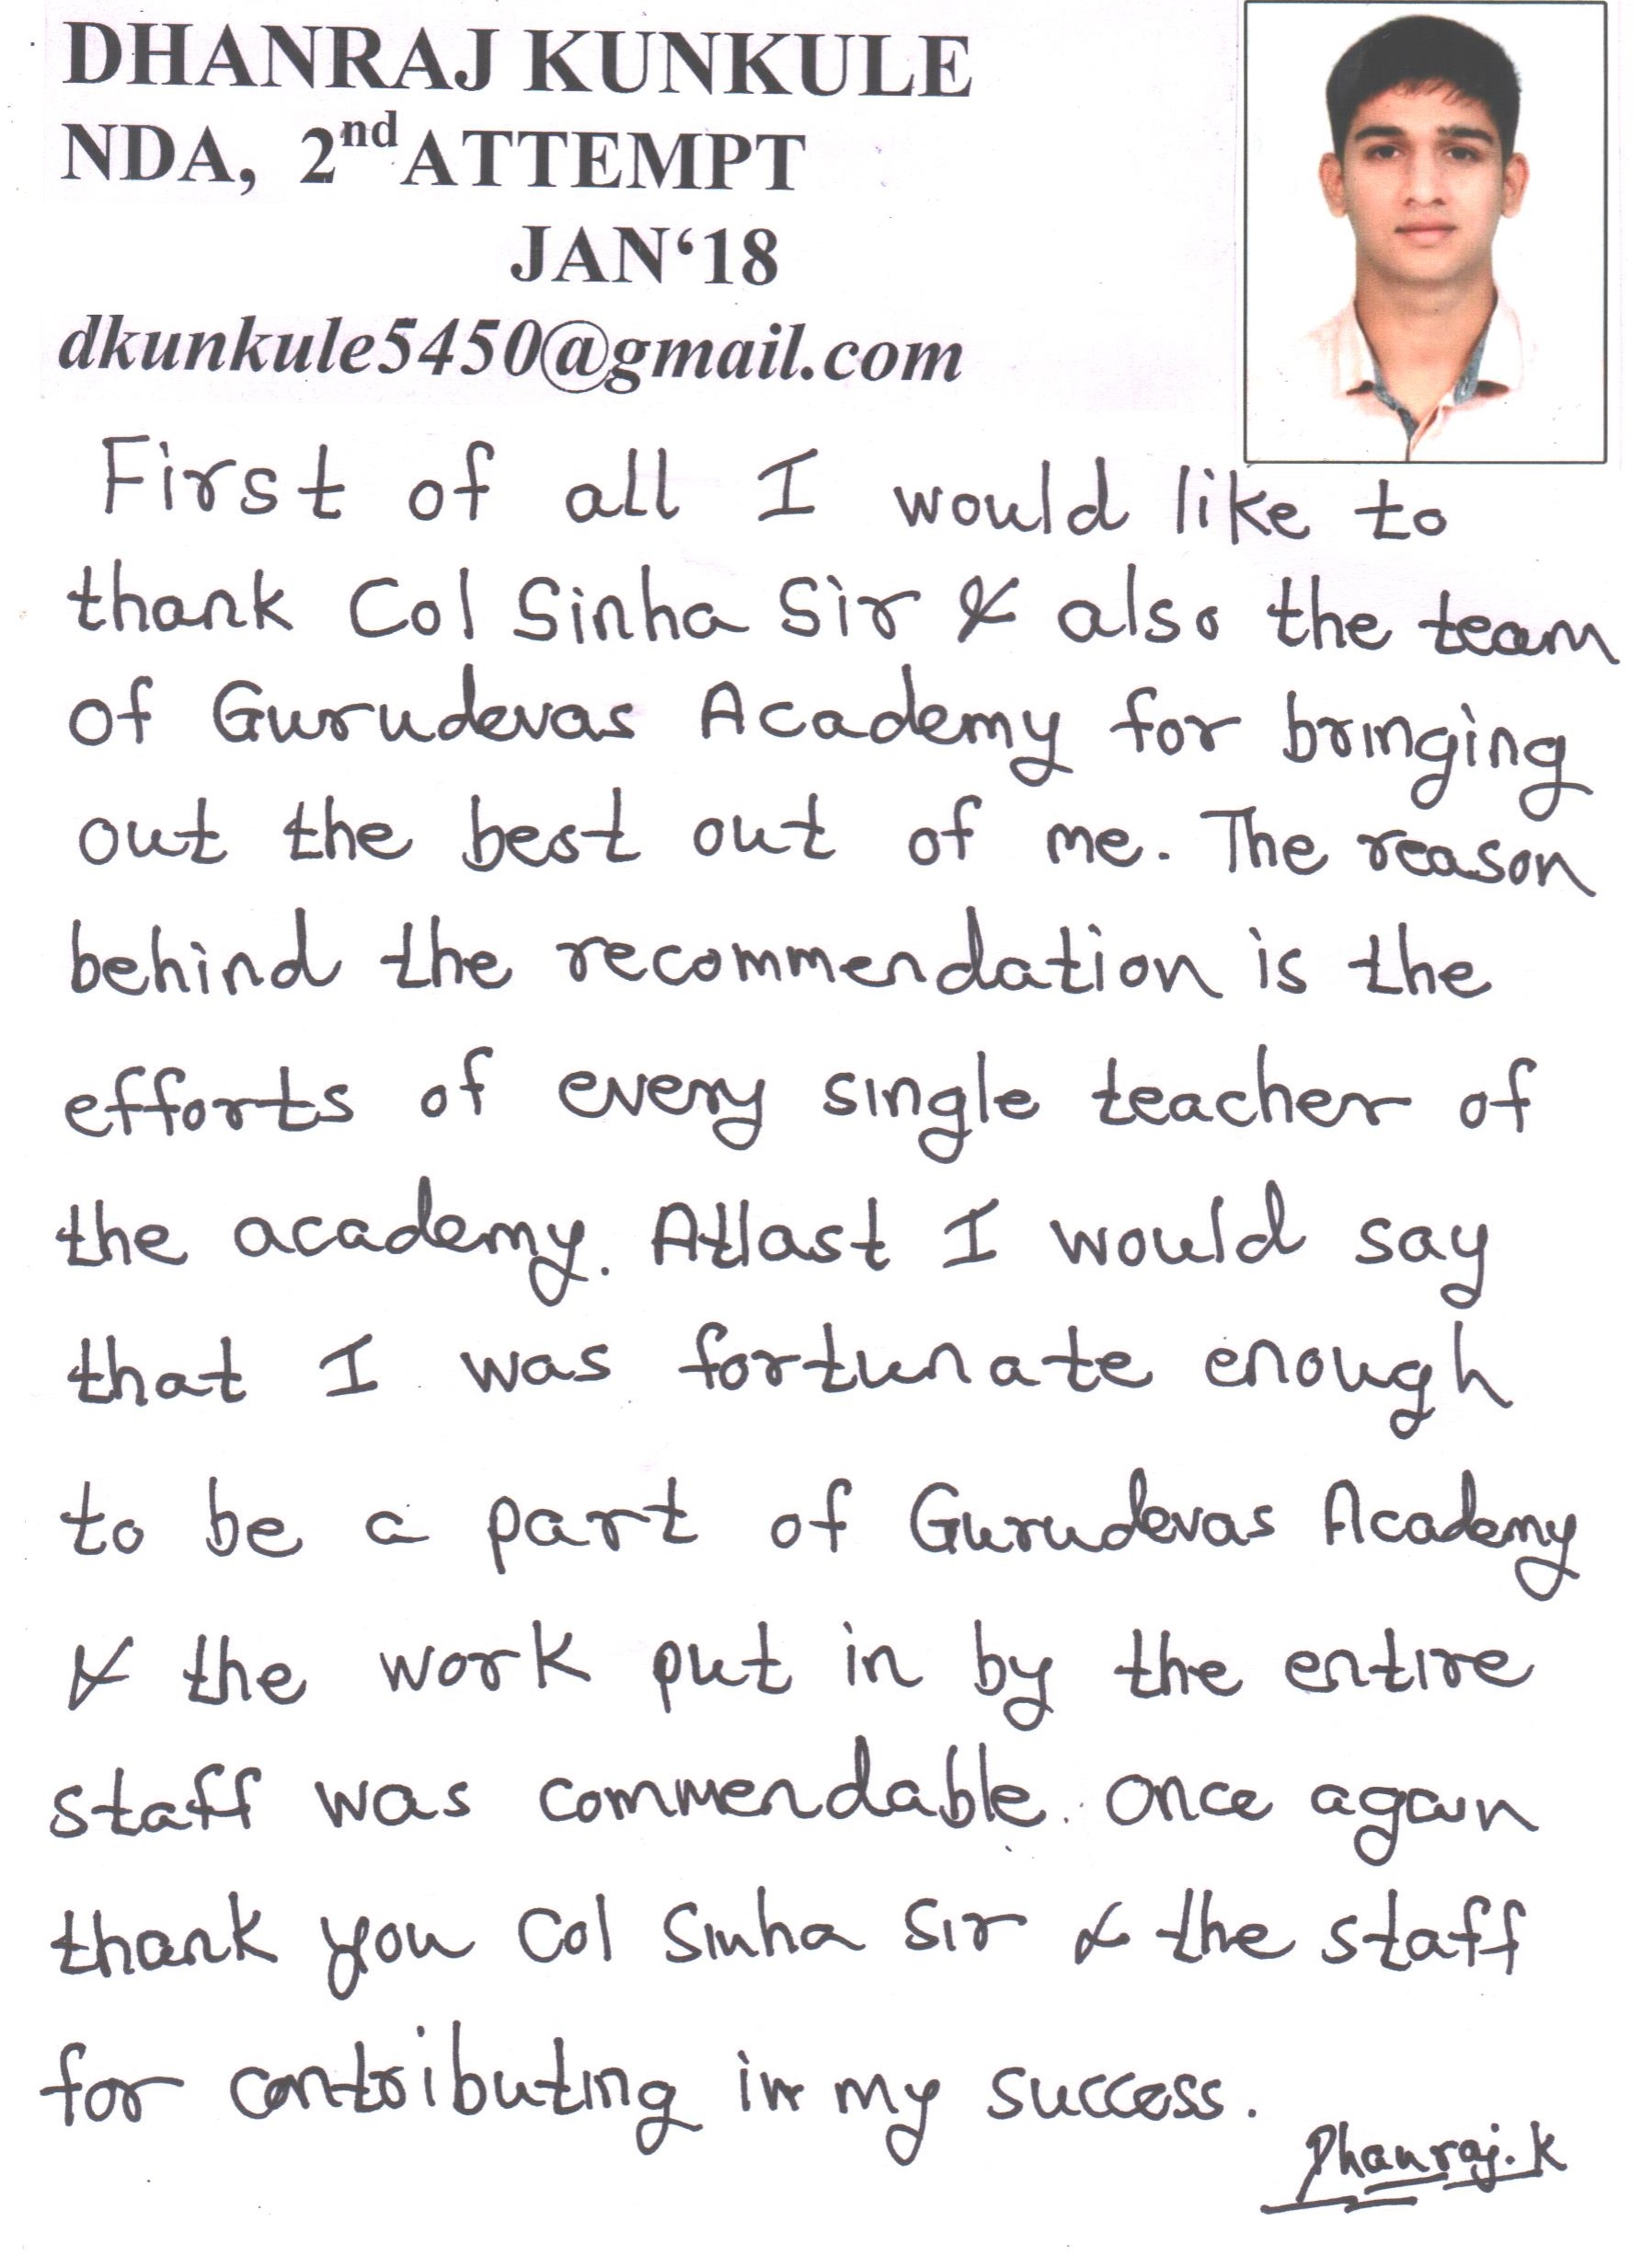 DHANRAJ KUNKULE
NDA, 2nd ATTEMPT
JAN‘18
dkunkule5450@gmail.com
First of all I would like to
thank Col Sinha Sir & also the team
of Gurudevas Academy for bringing
out the best out of me. The reason
behind the recommendation is the
efforts of every single teacher of
the academy. Atlast I would say
that I was fortunate enough
to be a part of Gurudevas Academy
& the work put in by the entire
staff was commendable. Once again
thank you Col Sinha Sir & the staff
for contributing in my success.
Dhanraj.K